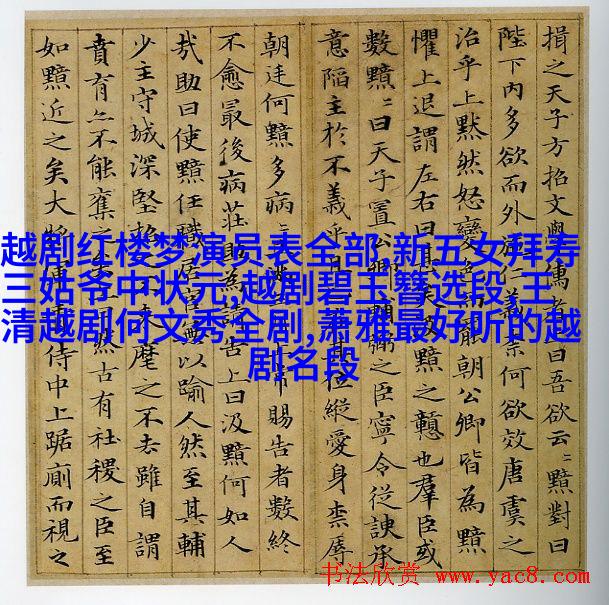 損之天子方招文學儒者曰吾欲云〻黯對曰
陛下内多欲而外仁義柰何欲效唐虞之
治乎上黙然怒變色罷朝公卿皆為黯
懼上退謂左右曰甚矣汲黯之戇也羣臣或
數黯〻曰天子置公卿弼之臣寧令從諛承
意陷主於不義乎且其位縱愛身柰辱
朝廷何黯多病〻常賜告者數終
不愈最後病莊助為請告上曰汲黯何如人
哉助曰使黯任職居官無以踰人然至其輔
少主守城深堅招之不來麾之不去雖自謂
賁育亦不能奪之然古有社稷之臣至
如黯近之矣大將軍青侍中上踞廁而視之
越剧红楼梦演员表全部,新五女拜寿
三姑爷中状元,越剧碧玉簪选段,王
清越剧何文秀全剧,萧雅最好听的越
剧名段
书法欣赏 www.yac8.com